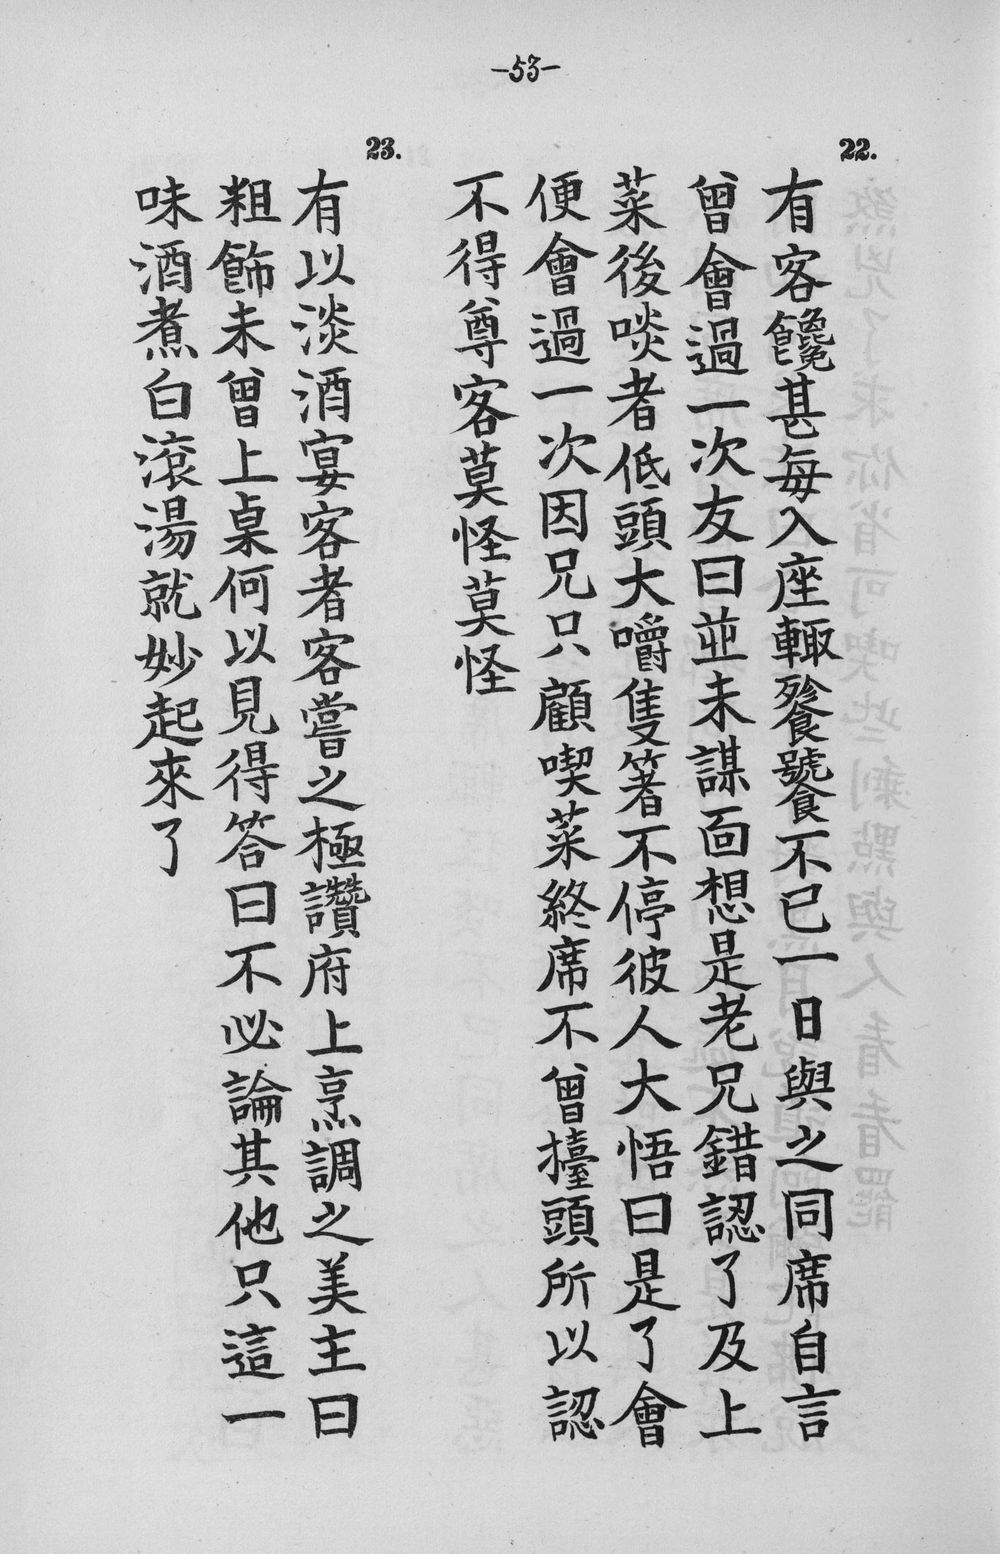 -53-
22.
有客饞甚每入座輙飱饕不已一日與之同席自言
曾會過一次友曰並未謀面想是老兄錯認了及上
菜後啖者低頭大嚼隻箸不停彼人大悟曰是了會
便會過一次因兄只顧喫菜終席不曾擡頭所以認
不得尊客莫怪莫怪
23.
有以淡酒宴客者客嘗之極讚府上烹調之美主曰
粗飾未曾上桌何以見得答曰不必論其他只這一
味酒煮白滾湯就妙起來了